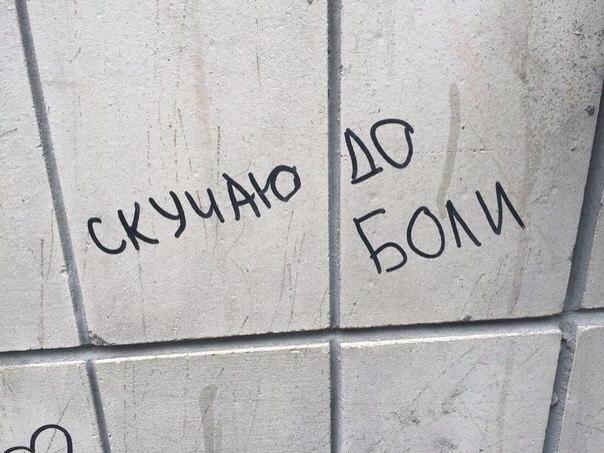 СКУЧАЮ ДО
БОЛИ